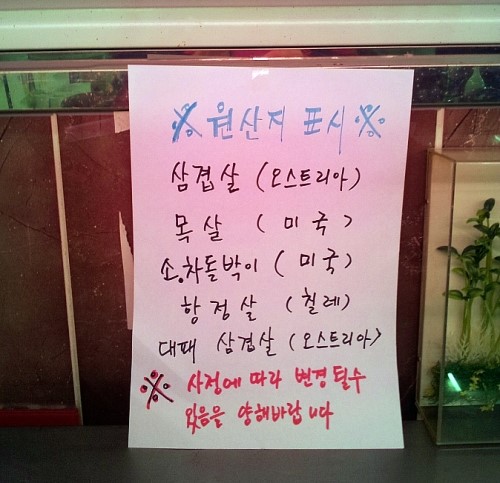 ※ 원산지 표시 ※
삼겹살 (오스트리아)
목살 (미국)
소,차돌박이 (미국)
항정살 (칠레)
대패 삼겹살 (오스트리아)
※ 사정에 따라 변경 될수
있음을 양해바랍니다